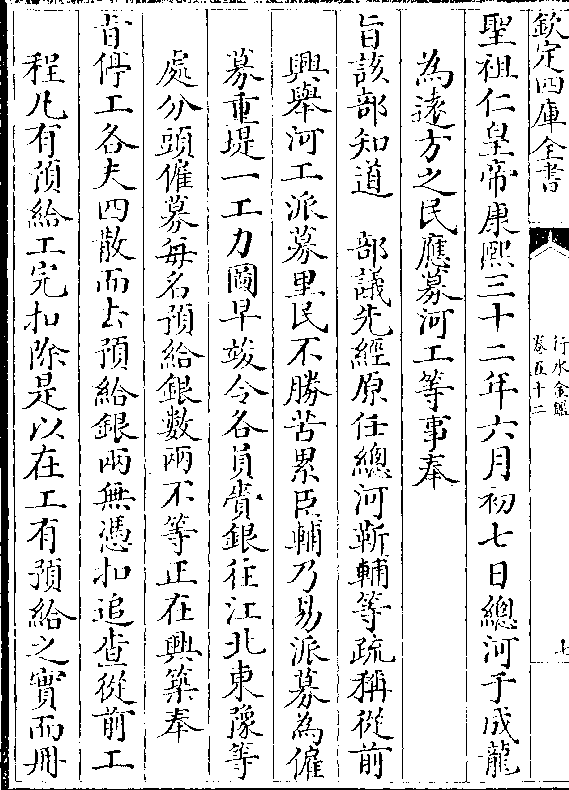 欽定四庫全書
行水金鑑
卷五十二
七
聖祖仁皇帝康熙三十二年六月初七日總河于成龍
為遠方之民應募河工等事奉
旨該部知道 部議先經原任總河靳輔等疏稱從前
興舉河工派募里民不勝苦累臣輔乃易派募為僱
募重堤一工力圖早竣令各員賫銀往江北東豫等
處分頭僱募每名預給銀數兩不等正在興築奉
旨停工各夫四散而去預給銀兩無憑扣追查從前工
程凡有預給工完扣除是以在工有預給之實而冊